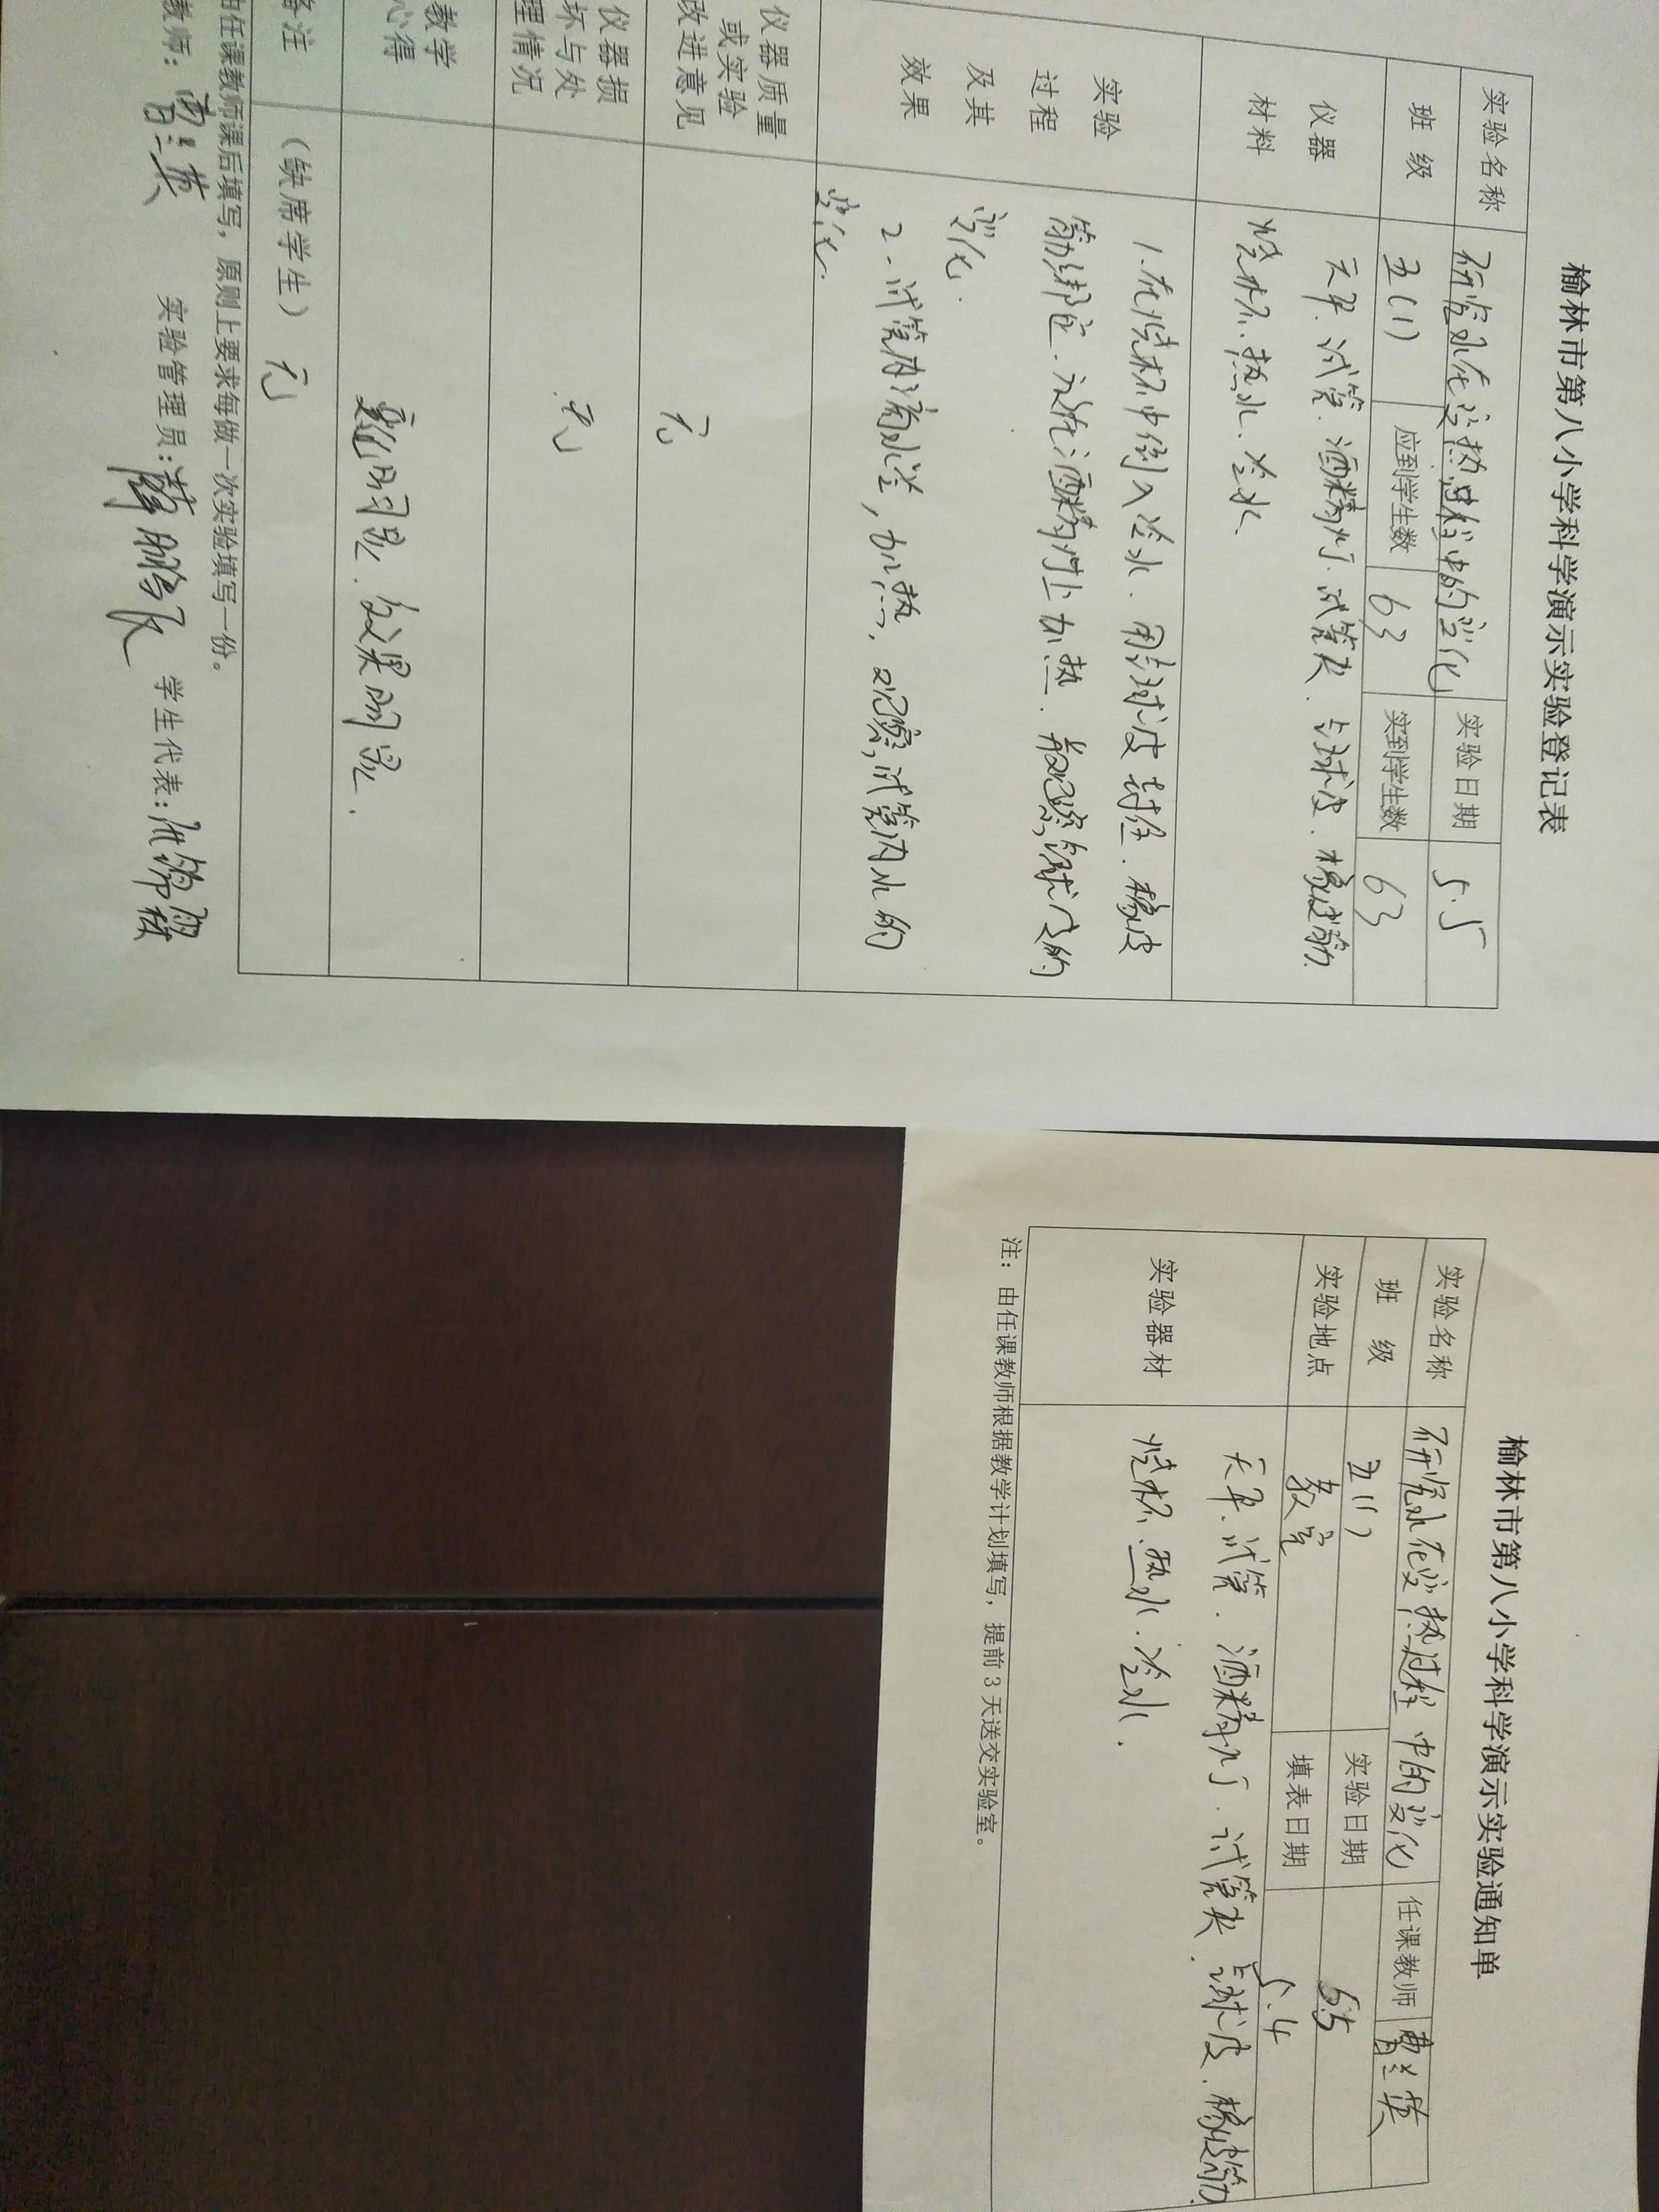 榆林市第八小学科学演示实验登记表
实验名称 研究水在变热过程中的变化 实验日期 5.5
班 级 五(1) 应到学生数 63 实到学生数 63
仪器材料 天平、试管、酒精灯、试管夹、气球皮、橡皮筋、
烧杯、热水、冷水、
实验过程及其效果
1、在烧杯中倒入冷水、用气球皮封住、橡皮
筋绑定、放在酒精灯上加热、观察气球皮的
变化.
2、试管内滴水,加热,观察试管内水的
变化.
仪器质量或实验改进意见 无
仪器损坏与处理情况 无
教学心得 变化明显、效果明显.
备注 (缺席学生) 无
由任课教师课后填写,原则上要求每做一次实验填写一份。
教师: 曹兰英 实验管理员: 薛 学生代表:
榆林市第八小学科学演示实验通知单
实验名称 研究水在变热过程中的变化 任课教师 曹兰英
班 级 五(1) 实验日期 5.5
实验地点 教室 填表日期 5.4
实验器材 天平、试管、酒精灯、试管夹、气球皮、橡皮筋、
烧杯、热水、冷水.
注:由任课教师根据教学计划填写,提前3天送交实验室。